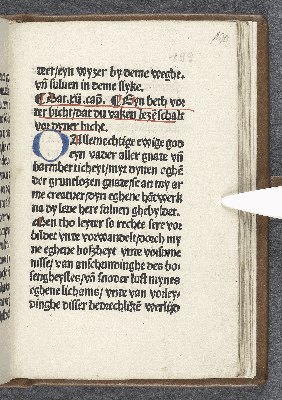 ter/eyn wyzer by deme weghe.
vñ suluen in deme styke.
¶ Dat .xij. cap. ¶ Eyn beth vor
ter bicht/dat du vaken lezē schalt
vor dyner bicht.
O Allemechtige ewige god
eyn vader aller gnate vñ
barmherticheyt/myt dynen eghē
der gruntlozen gnate se an my ar
me creatuer/dyn eghene hātwerk
na dy leue here suluen ghebyldet.
Ben tho leyter so rechte sere vor
bildet vnte vorwandelt/dorch my
ne eghene boszheyt vnte vorsüme
nisse/van anschundinghe des bo
sen gheystes/vñ snoder lust mynes
eghene lichams/vnte van vorley
dinghe disser bedrechliken werlt/so